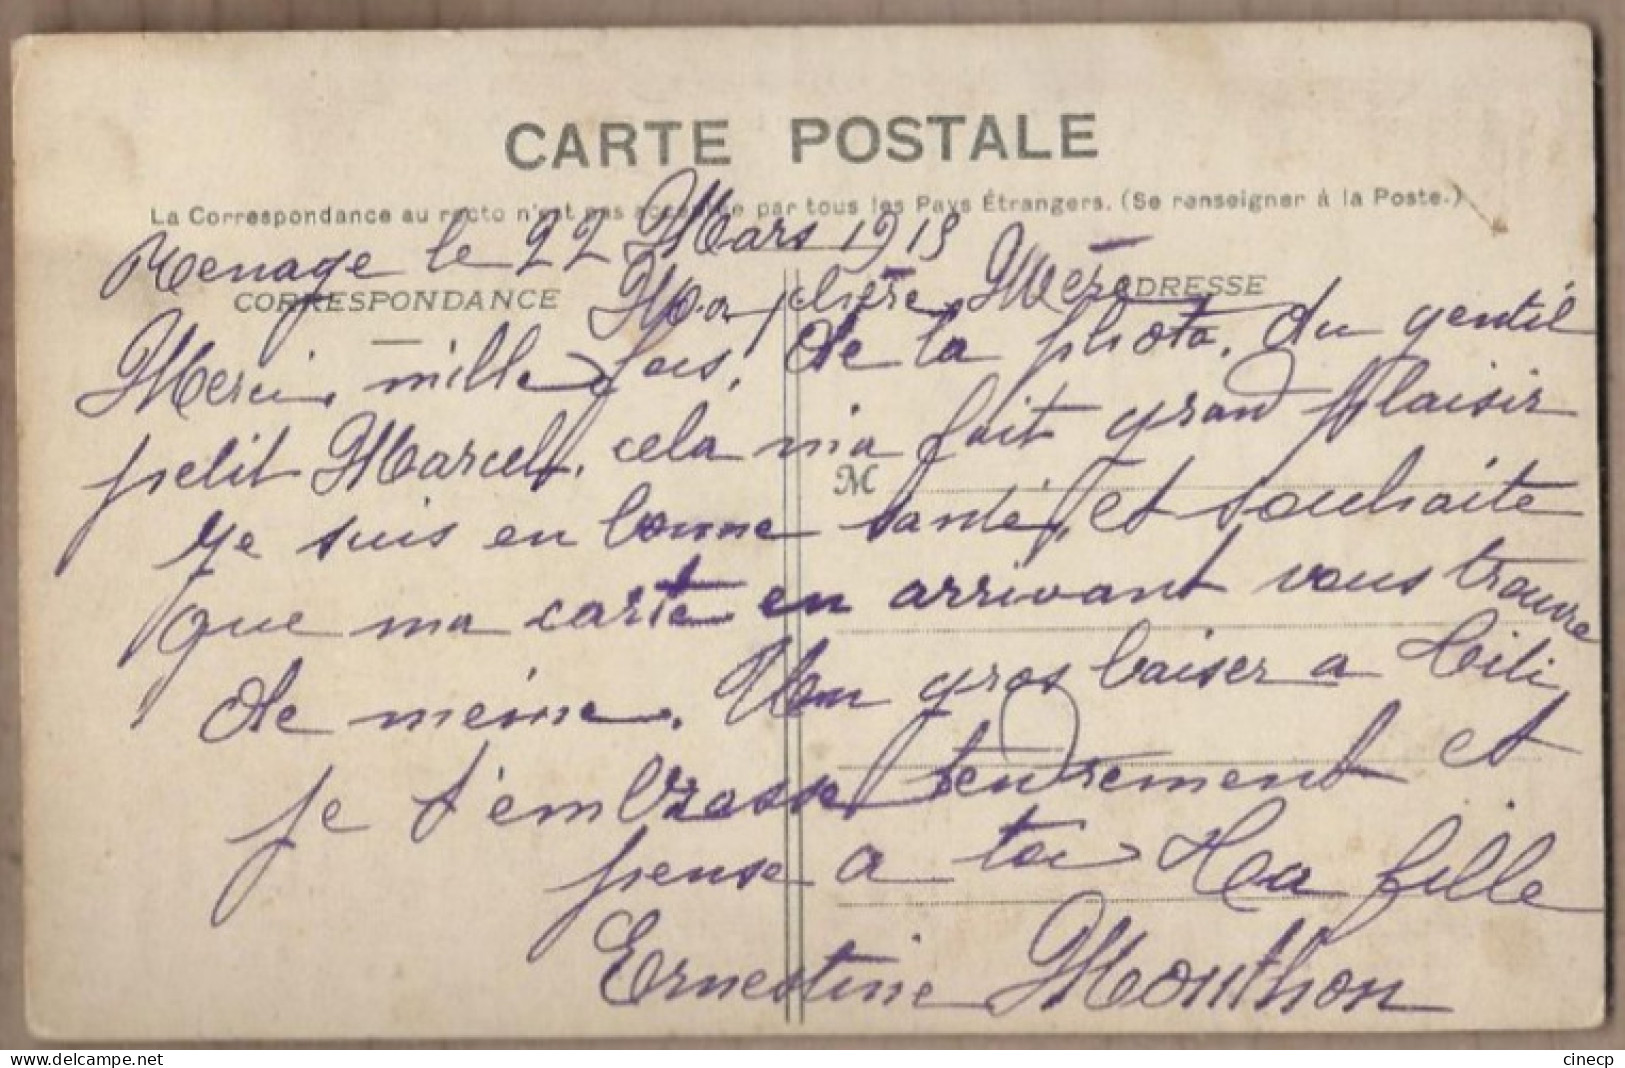 CARTE POSTALE
La Correspondance au recto n'est pas acceptée par tous les Pays Étrangers. (Se renseigner à la Poste.)
le 22 Mars 1918
CORRESPONDANCE
ADRESSE
Ma chère Mère
Merci mille fois, de la photo, du gentil
petit Marcel, cela m'a fait grand plaisir
M
Je suis en bonne santé, et souhaite
que ma carte en arrivant vous trouve
de même. Un gros baiser a Lili
je t'embrasse tendrement et
pense a toi Ta fille
Ernestine Monthon
delcampe.net
cinecp